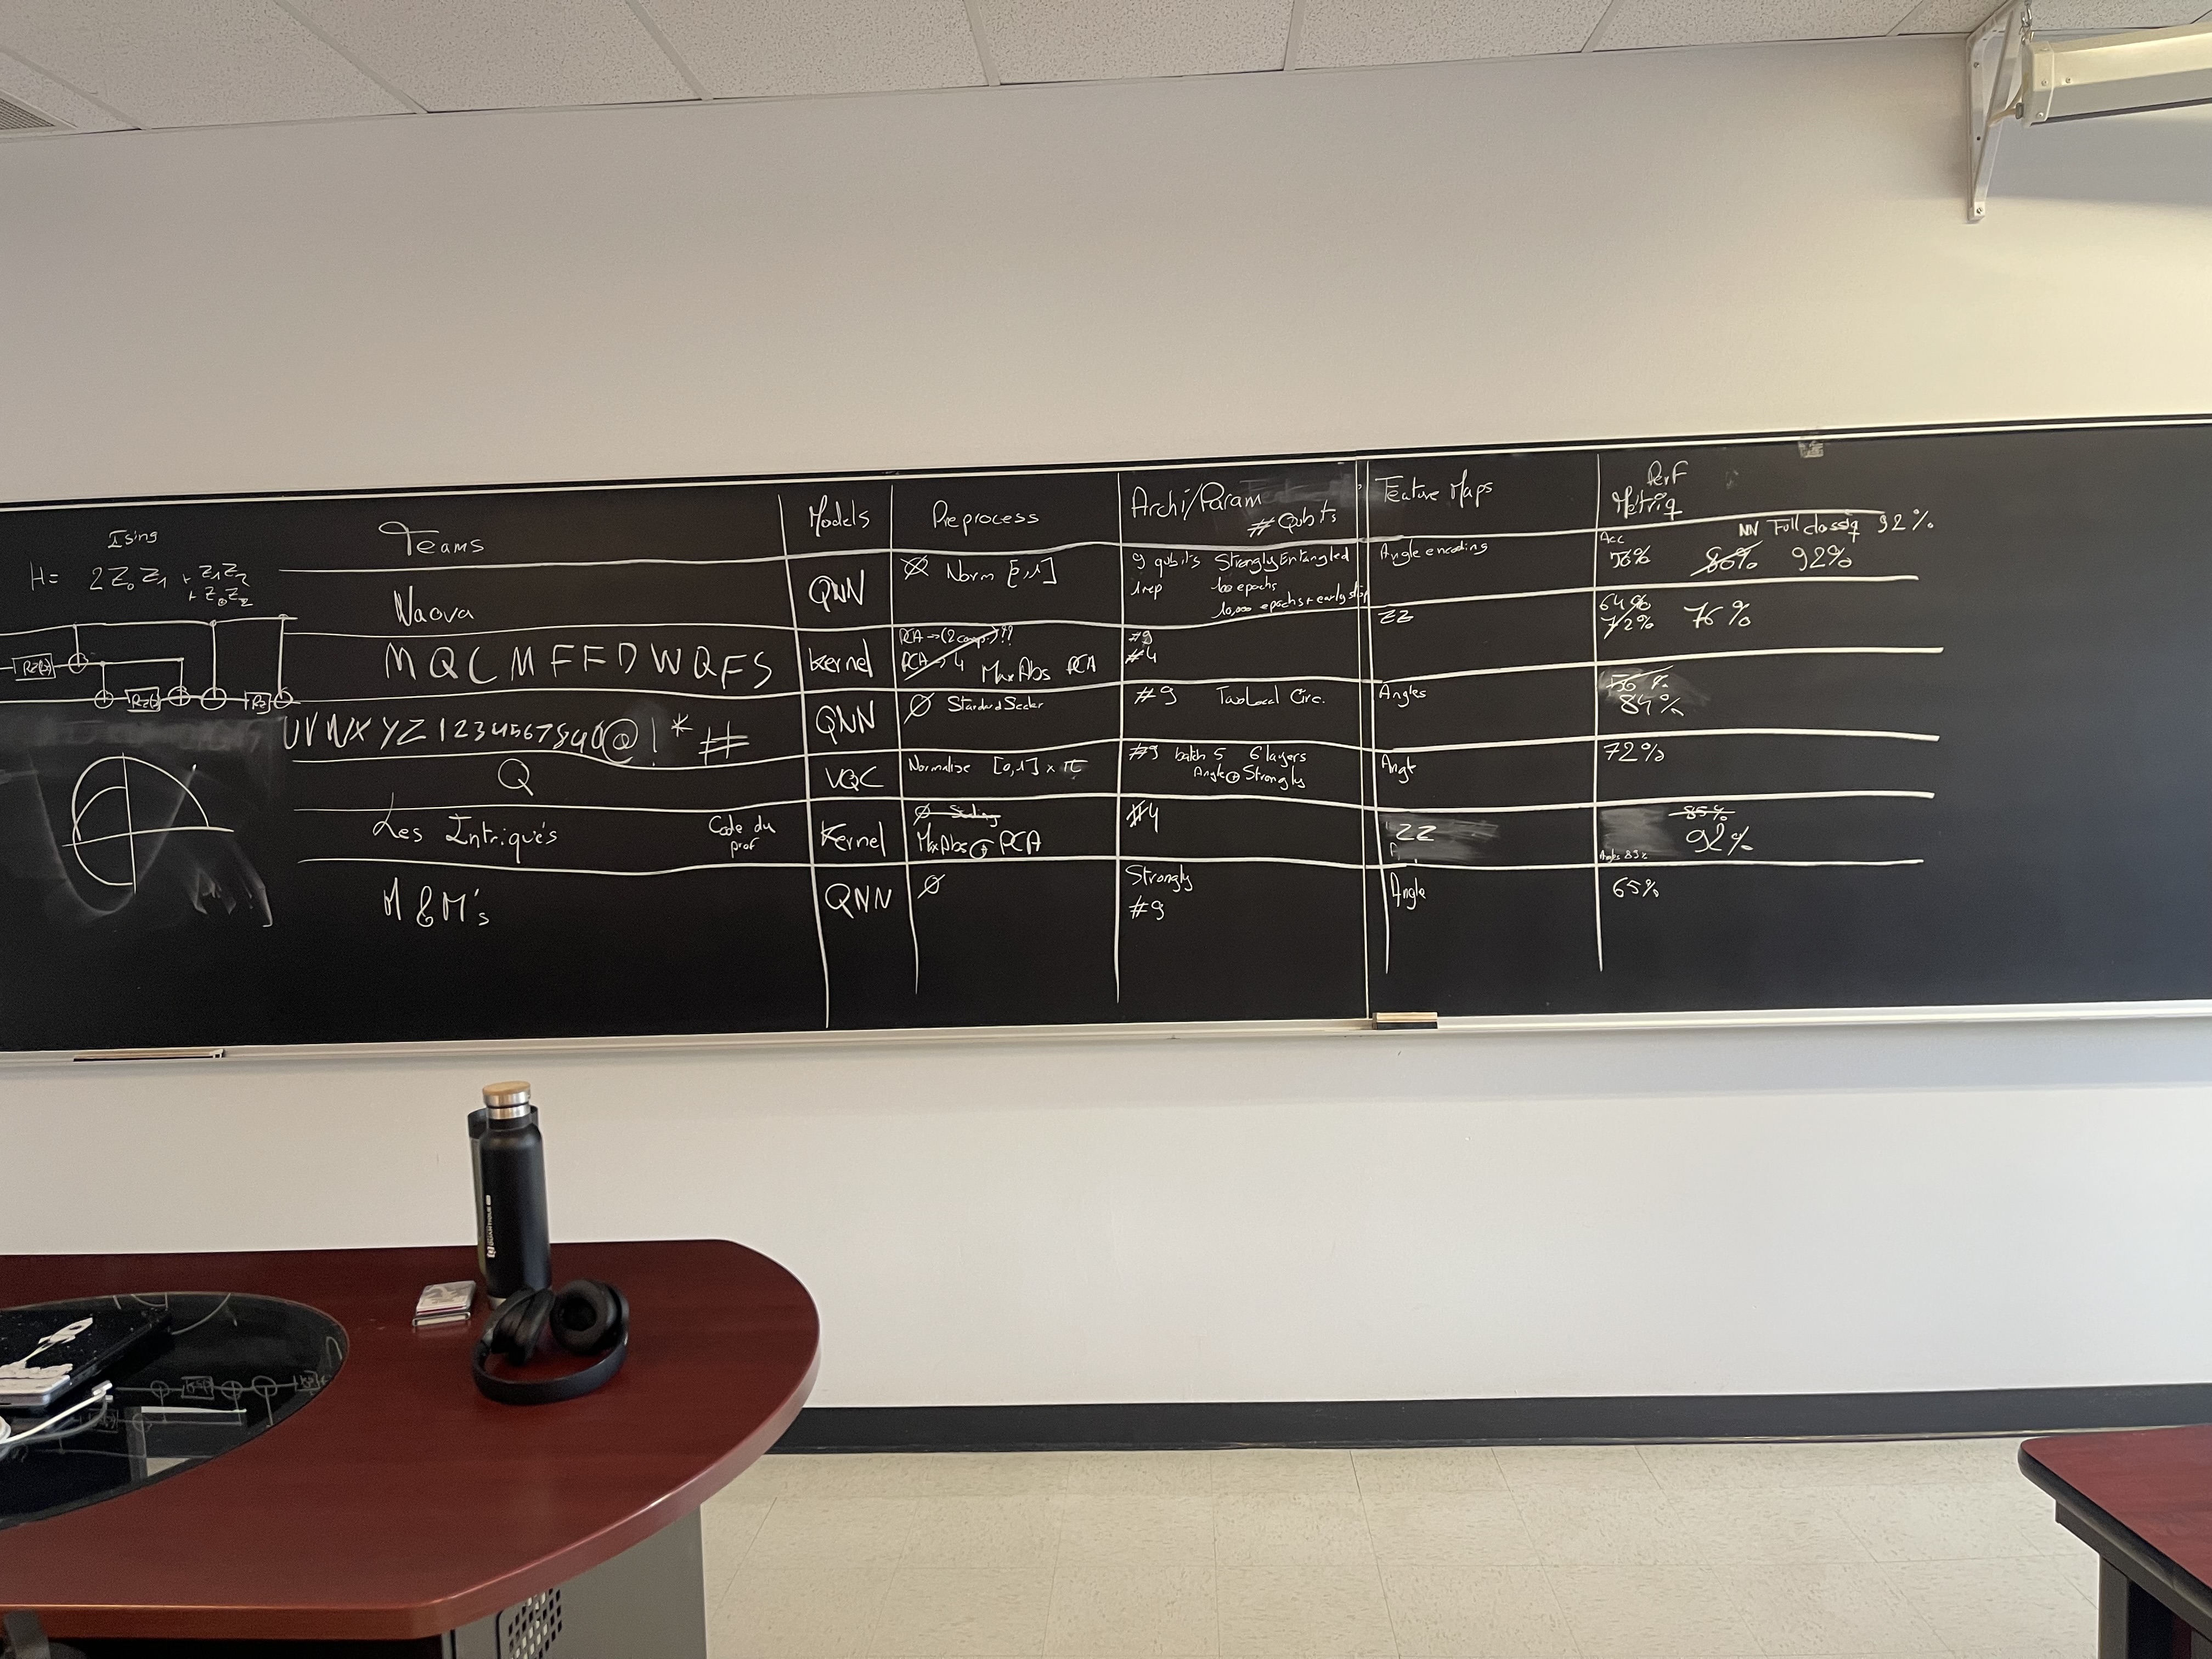 Ising
H = 2Z₀Z₁ + Z₁Z₂
+ Z₀Z₂
Teams
Models
Preprocess
Archi/Param
# Qubits
Feature Maps
Perf
Métriq
Naova
QNN
Norm [0,1]
9 qubits StronglyEntangled
1rep 100 epochs
10,000 epochs + early stop
Angle encoding
NN Full classiq 92%
Acc
80% 92%
MQCMFFDWQFS
Kernel
PCA → (2 comp.) !!
PCA → 4 MaxAbs PCA
#9
#4
ZZ
64%
72% 76%
UVWXYZ1234567890@!*#
QNN
Ø StandardScaler
#9 TwoLocal Circ.
Angles
84%
Q
VQC
Normalize [0,1] x π
#9 batch 5 6 layers
Angle ⊕ Strongly
Angle
72%
Les Intriqués
Code du
prof
Kernel
Ø Scaling
MaxAbs ⊕ PCA
#4
ZZ
85%
92%
M&M's
QNN
Ø
Strongly
#9
Angle
65%